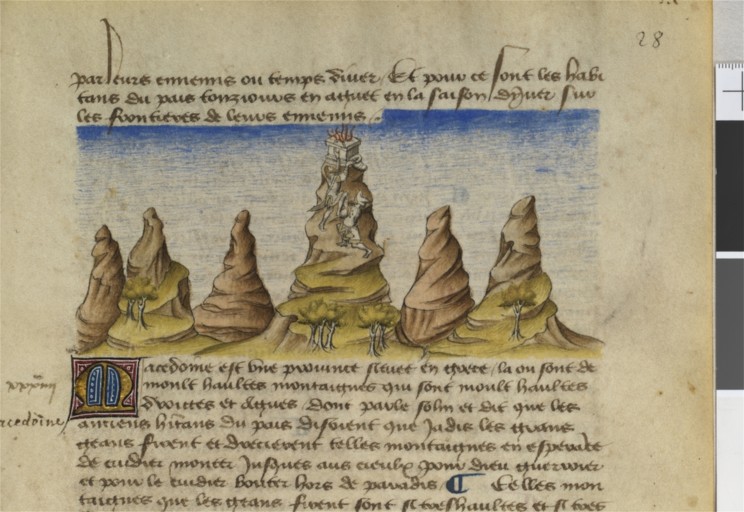 28
par leurs ennemis ou temps diver. Et pour ce sont les habi
tans du pais tousiours en aguet en la saison dyver sur
les frontieres de leurs ennemis.
Macedoine est une province situee en grece, la ou sont de
moult haultes montaignes qui sont moult haultes
droittes et agues, dont parle solin et dit que les
anciens hitans du pais disoient que Jadis les grans
geans firent et drecierent telles montaignes en esperace
de cuidier monter Jusques aus cieulx pour dieu guerroier
et pour le cuidier bouter hors de paradis ¶ Celles mon
taignes que les geans firent sont si treshaultes et si tres